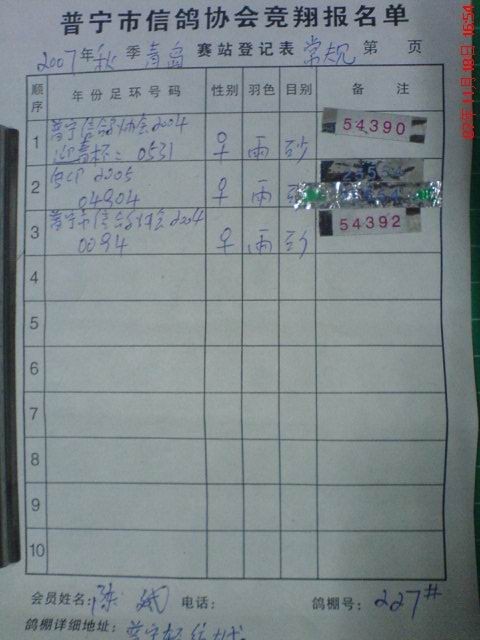 普宁市信鸽协会竞翔报名单
2007年秋季青岛赛站登记表常规第 页
顺序 年份足环号码 性别 羽色 目别 备注
1 普宁信鸽协会2004 ♀ 雨 砂 54390
迎春杯: 0531
2 2005 ♀ 雨
04804
3 普宁市信鸽协会2004 ♀ 雨 砂 54392
0094
4
5
6
7
8
9
10
会员姓名:陈 电话: 鸽棚号:227#
鸽棚详细地址:普宁
07年11月18日 16:54